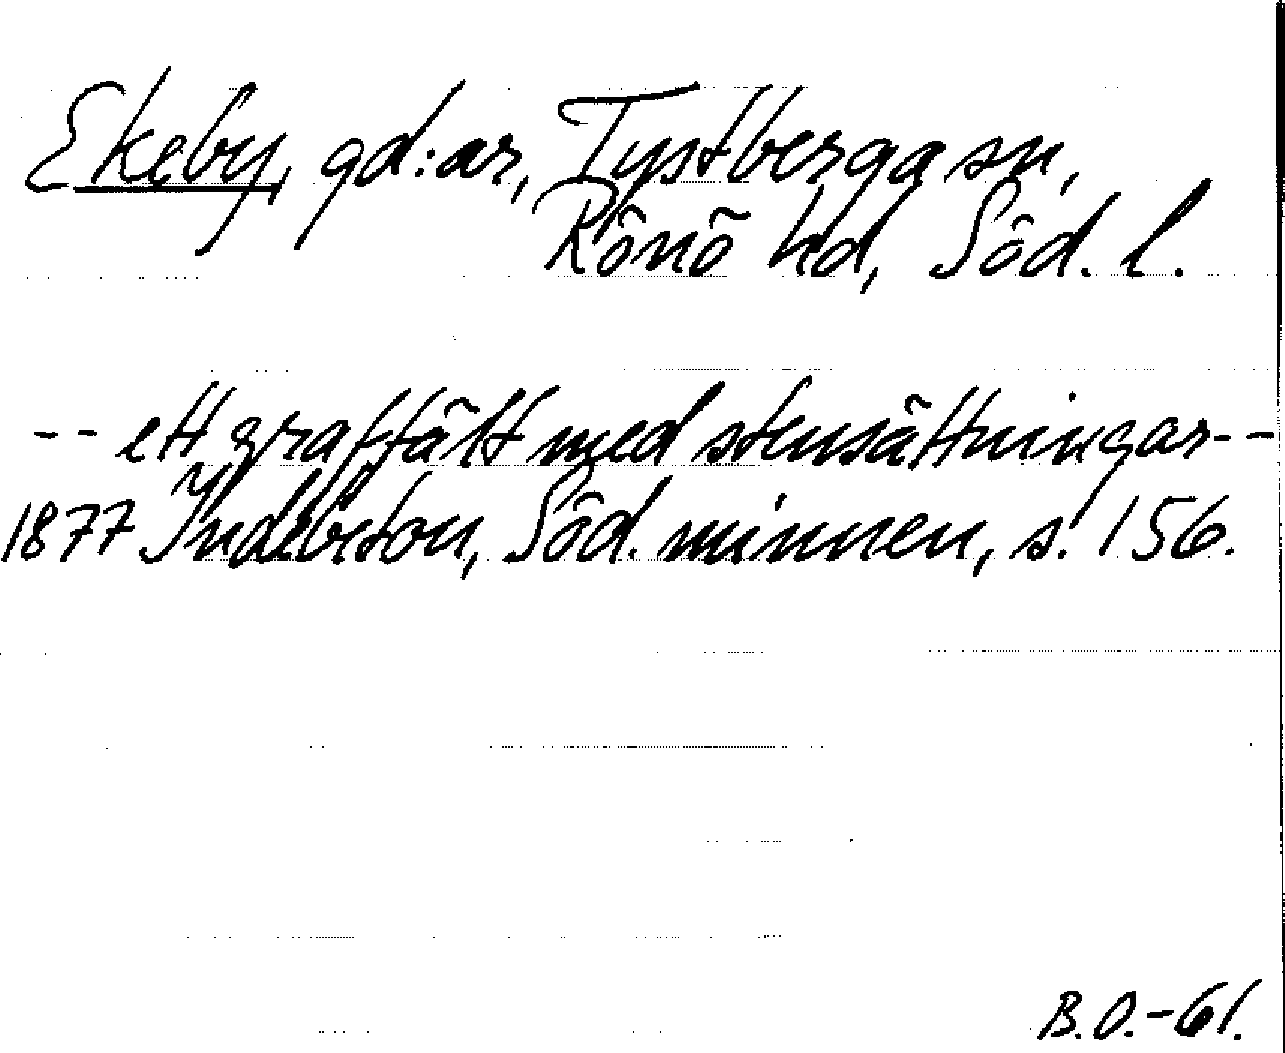 Ekeby, gd:ar, Tystberga sn,
Rönö hd, Söd. l.
-- ett graffält med stensättningar--
1877 Indebetou, Söd. minnen, s. 156.
B.O.-61.